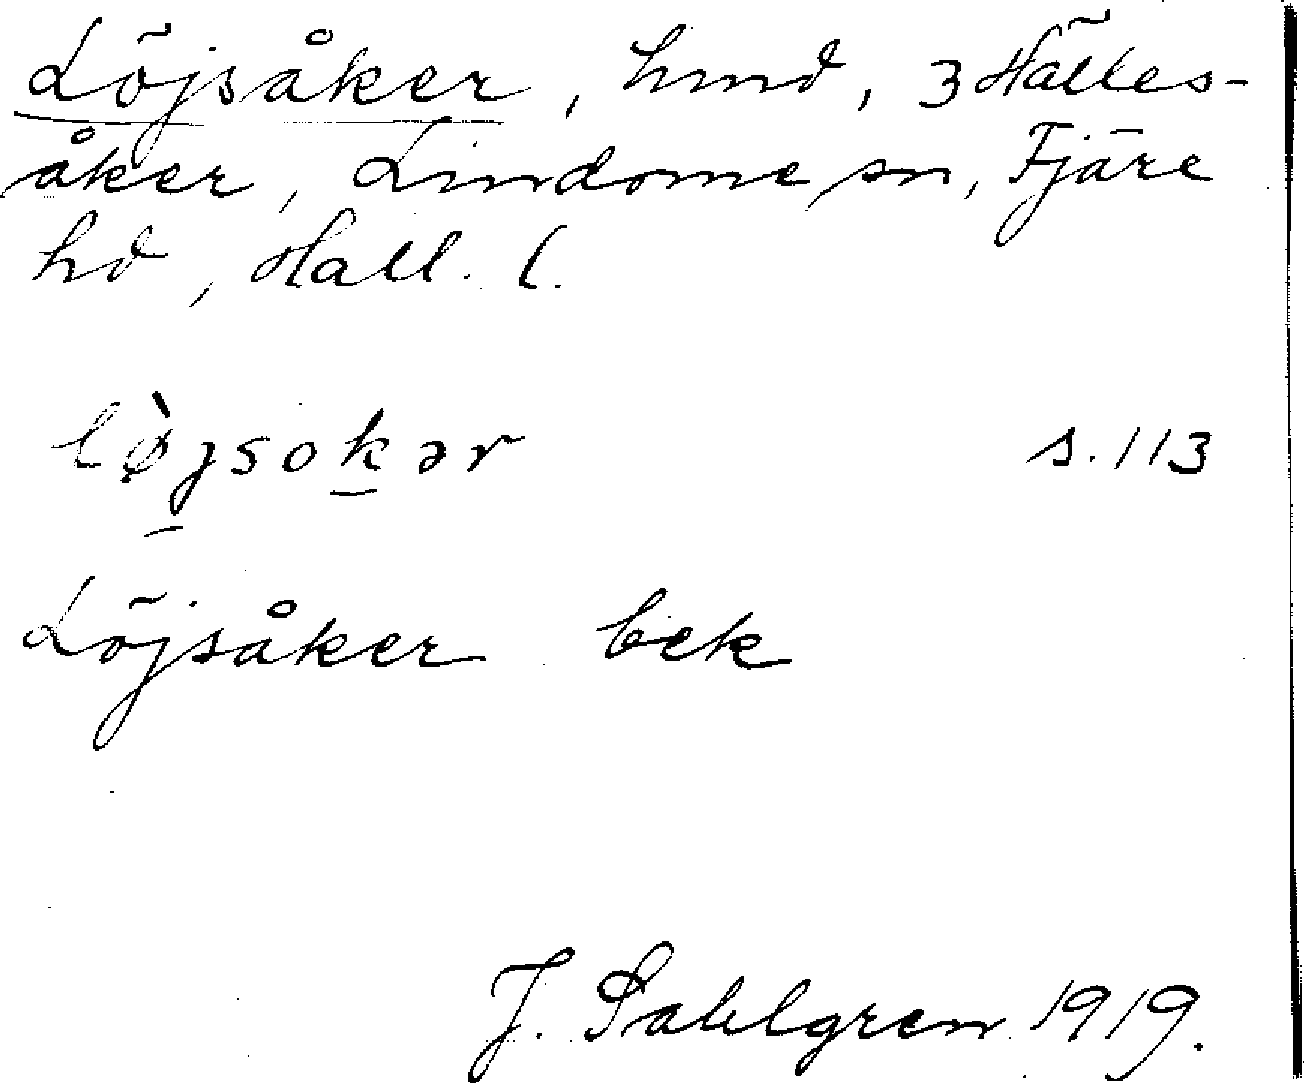 Löjsåker, hmd, 3 Hälles-
åker, Lindome sn, Fjäre
hd, Hall. l.
løjsokər s. 113
Löjsåker bek
J. Sahlgren 1919.